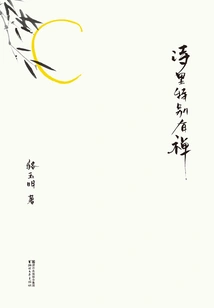 诗里特别有禅
骆玉明 著